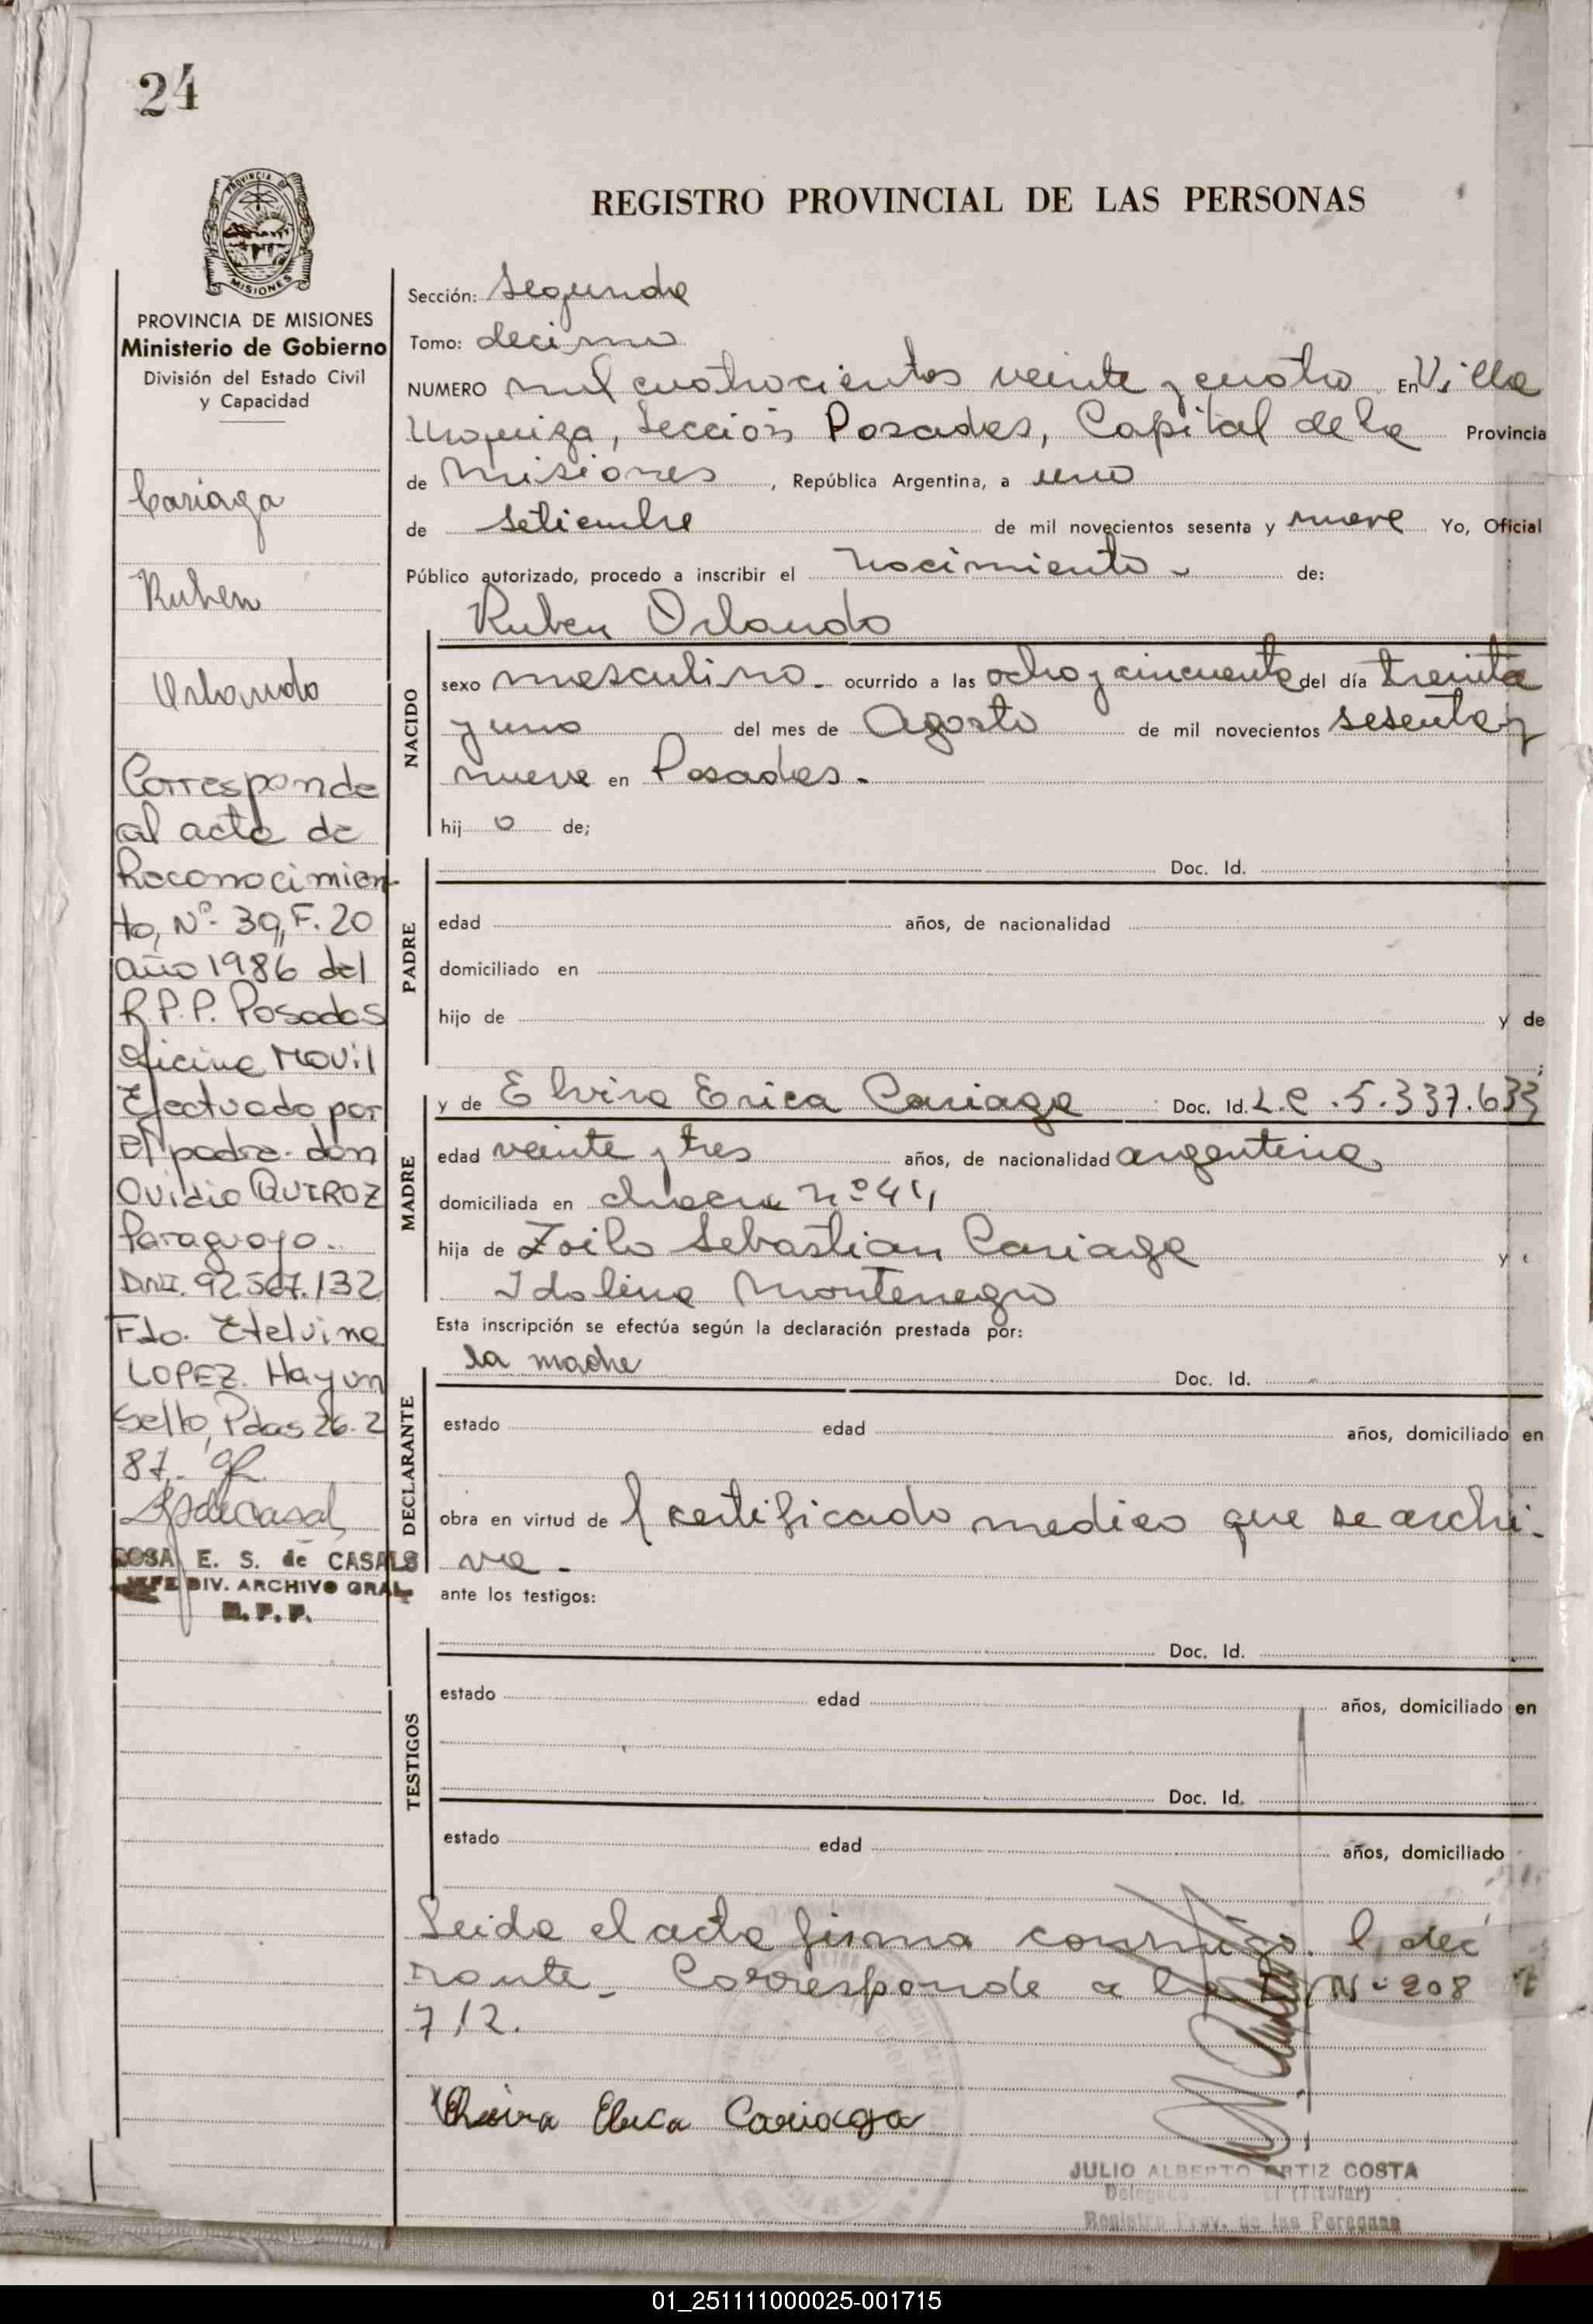 24
PROVINCIA DE
MISIONES
REGISTRO PROVINCIAL DE LAS PERSONAS
PROVINCIA DE MISIONES
Ministerio de Gobierno
División del Estado Civil
y Capacidad
Cariaga
Ruben
Orlando
Corresponde
al acta de
Reconocimien-
to, Nº 39, F. 20
año 1986 del
R.P.P. Posadas
Oficina Movil
Efectuado por
El padre don
Ovidio QUIROZ
Paraguayo.
DNI. 92.567.132
Fdo. Etelvina
LOPEZ. Hay un
Sello, Pdas 26-2
87.
ROSA E. S. de CASALS
JEFE DIV. ARCHIVO GRAL
R.P.P.
Sección: Segunda
Tomo: decimo
NUMERO mil cuatrocientos veinte y cuatro En Villa
Urquiza, Sección Posadas, Capital de la Provincia
de Misiones, República Argentina, a uno
de Setiembre de mil novecientos sesenta y nueve Yo, Oficial
Público autorizado, procedo a inscribir el nacimiento - de:
NACIDO
Ruben Orlando
sexo masculino - ocurrido a las ocho y cincuenta del día treinta
y uno del mes de Agosto de mil novecientos sesenta y
nueve en Posadas.
hij o de;
PADRE
Doc. Id.
edad años, de nacionalidad
domiciliado en
hijo de y de
;
MADRE
y de Elvira Erica Cariaga Doc. Id. L.C. 5.337.633
edad veinte y tres años, de nacionalidad argentina
domiciliada en chacra nº 44
hija de Zoilo Sebastian Cariaga y
Idolina Montenegro
Esta inscripción se efectúa según la declaración prestada por:
DECLARANTE
la madre
Doc. Id.
estado edad años, domiciliado en
obra en virtud de l certificado medico que se archi-
va -
ante los testigos:
TESTIGOS
Doc. Id.
estado edad años, domiciliado en
Doc. Id.
estado edad años, domiciliado
Leida el acta firma conmigo
rante - Corresponde a la Nº 208
712.
Elvira Erica Cariaga
JULIO ALBERTO ORTIZ COSTA
(Titular)
Registro Prov. de las Personas
01_251111000025-001715